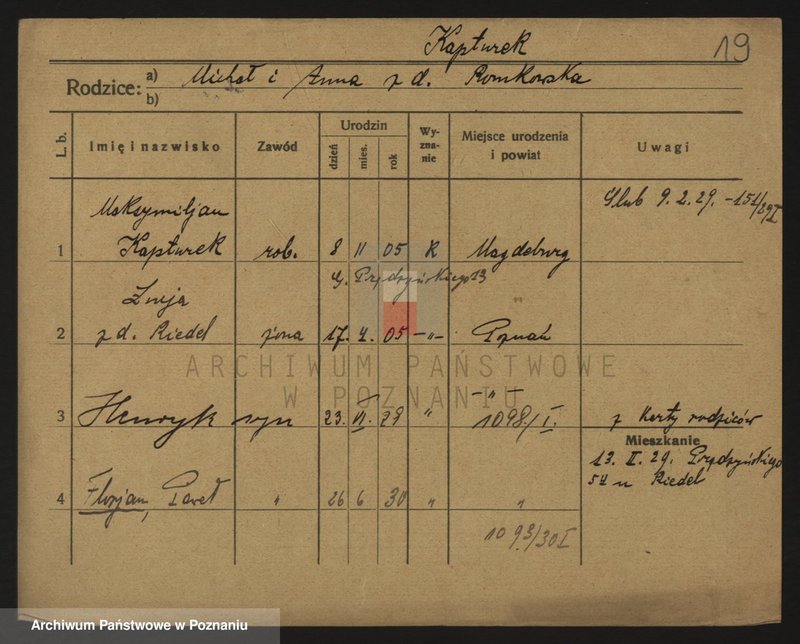 Kapturek 19
Rodzice: a) Michał i Anna z d. Romkowska
b)
L. b. Imię i nazwisko Zawód Urodzin dzień mies. rok Wyznanie Miejsce urodzenia i powiat Uwagi
Maksymiljan Ślub 9.2.29. - 151/29I
1 Kapturek rob. 8 11 05 R Magdeburg
Prądzyńskiego 13
2 z d. Riedel żona 17. 4. 05 -"- Poznań
ARCHIWUM PAŃSTWOWE
W POZNANIU
-"-
3 Henryk syn 23. VI. 29 " 1098/I. z Karty rodziców
Mieszkanie
13. II. 29. Prądzyńskiego
54 u Riedel
4 Florjan, Paweł " 26 6 30 " "
1093/30I
Archiwum Państwowe w Poznaniu